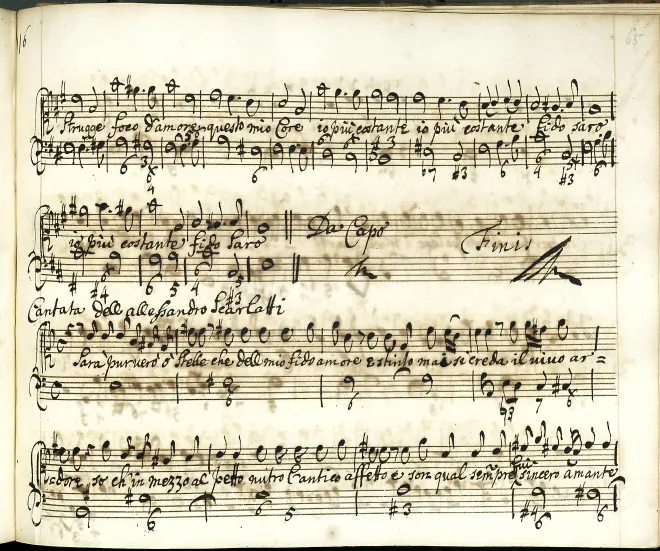 16
65
strugge foco d'amore questo mio Core io più costante io più costante fido sarò
io più costante fido sarò Da Capo Finis
Cantata dell allessandro Scarlatti
Sarà pur vero ò Stelle che dell mio fido amore Estinto mai si creda il vivo ar=
=dore, so ch'in mezzo al petto nutro l'antico affetto e son qual sempre fui sincero amante